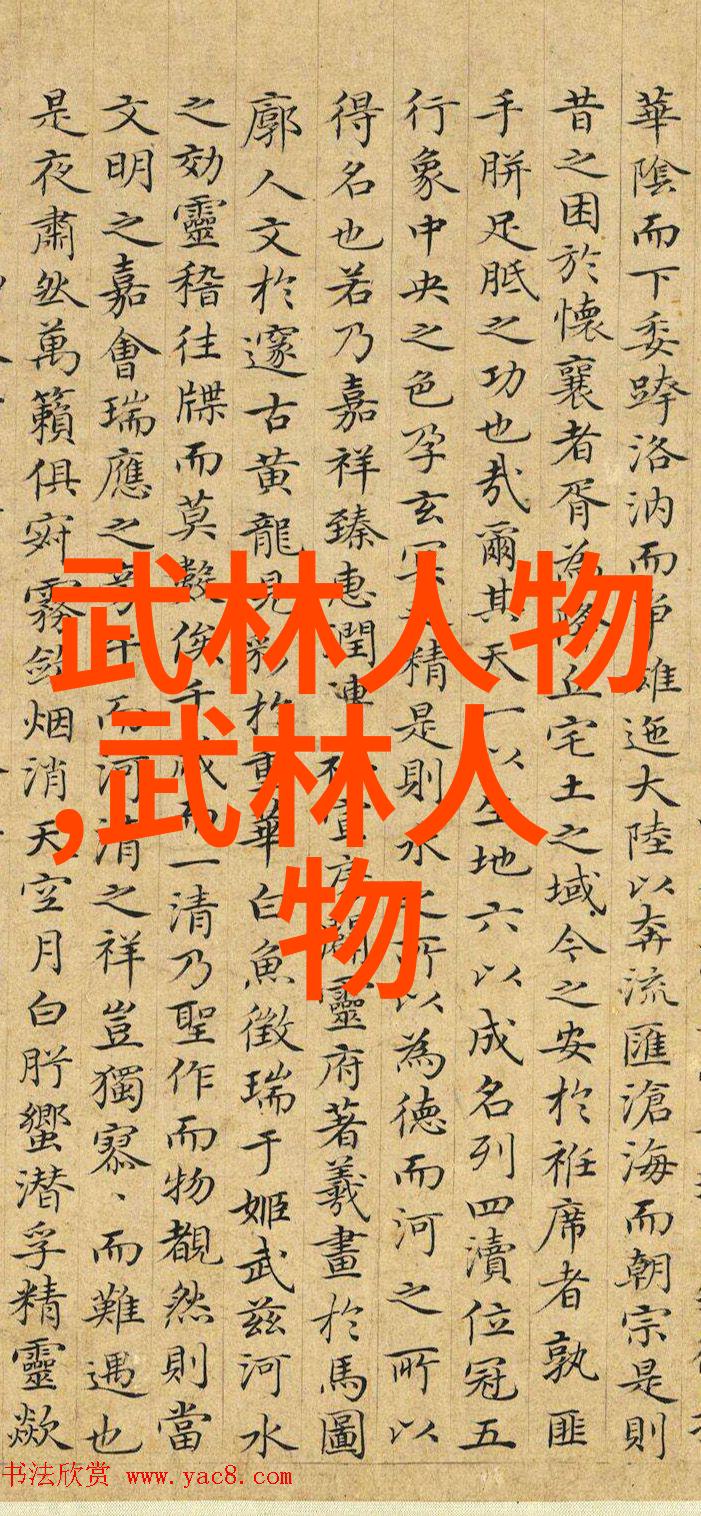 華陰而下委跨洛汭而爭雄迤大陸以奔流匯滄海而朝宗是則
昔之困於懷襄者胥為降丘宅土之域今之安於袵席者孰匪
手胼足胝之功也哉爾其天一以生地六以成名列四瀆位冠五
行象中央之色孕玄冥之精是則水之所以為德而河之所以
得名也若乃嘉祥臻惠潤連不宣房闢靈府著羲畫於馬圖
廓人文於邃古黃龍見彩於重華白魚徵瑞于姬武茲河水
之効靈稽往牒而莫殼俟千歲而一清乃聖作而物覩然則當
文明之嘉會瑞應之奇于而河清之祥豈獨寡、而難遇也
是夜肅然萬籟俱寂霧斂烟消天空月白肸蠁潜孚精靈歘
武林人物
,武林人
物
书法欣赏 www.yac8.com